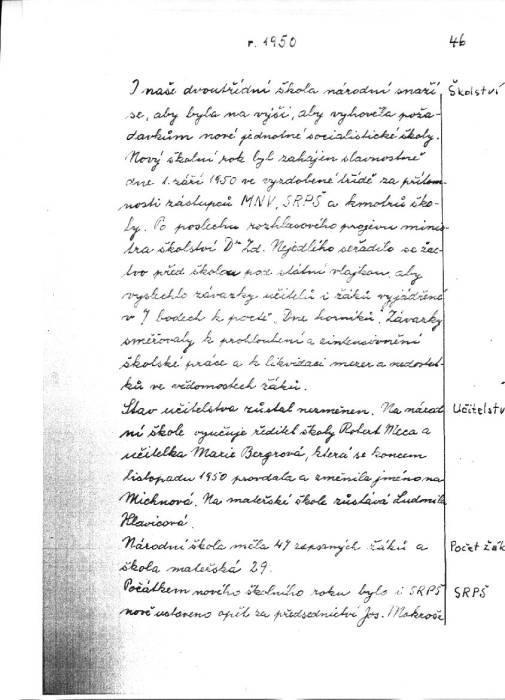 r. 1950
46
I naše dvoutřídní škola národní snaží Školství
se, aby byla na výši, aby vyhověla poža-
davkům nové jednotné socialistické školy.
Nový školní rok byl zahájen slavnostně
dne 1. září 1950 ve vyzdobené třídě za přítom
nosti zástupců MNV, SRPŠ a kmotrů ško-
ly. Po poslechu rozhlasového projevu minis-
tra školství Dr Zd. Nejedlého seřadilo se žac-
tvo před školou pod státní vlajkou, aby
vyslechlo závazky učitelů i žáků vyjádřené
v 7 bodech k poctě "Dne horníků". Závazky
směřovaly k prohloubení a zintensivnění
školské práce a k likvidaci mezer a nedostat-
ků ve vědomostech žáků.
Stav učitelstva zůstal nezměněn. Na národ Učitelstv
ní škole vyučuje ředitel školy Robert Meca a
učitelka Marie Bergrová, která se koncem
listopadu 1950 provdala a změnila jméno na
Michnová. Na mateřské škole zůstává Ludmila
Hlavicová.
Národní škola měla 47 zapsaných žáků a Počet žák
škola mateřská 29.
Počátkem nového školního roku bylo i SRPŠ SRPŠ
nově ustaveno opět za předsednictví Jos. Mokroše